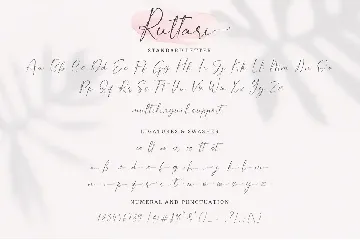 Ruttari
STANDARD LETTER
Aa Bb Cc Dd Ee Ff Gg Hh Ii Jj Kk Ll Mm Nn Oo
Pp Qq Rr Ss Tt Uu Vv Ww Xx Yy Zz
multilingual support
LIGATURES & SWASHES
a b c d e f g h i j k l m
n o p q r s t u v w x y z
NUMERAL AND PUNCTUATION